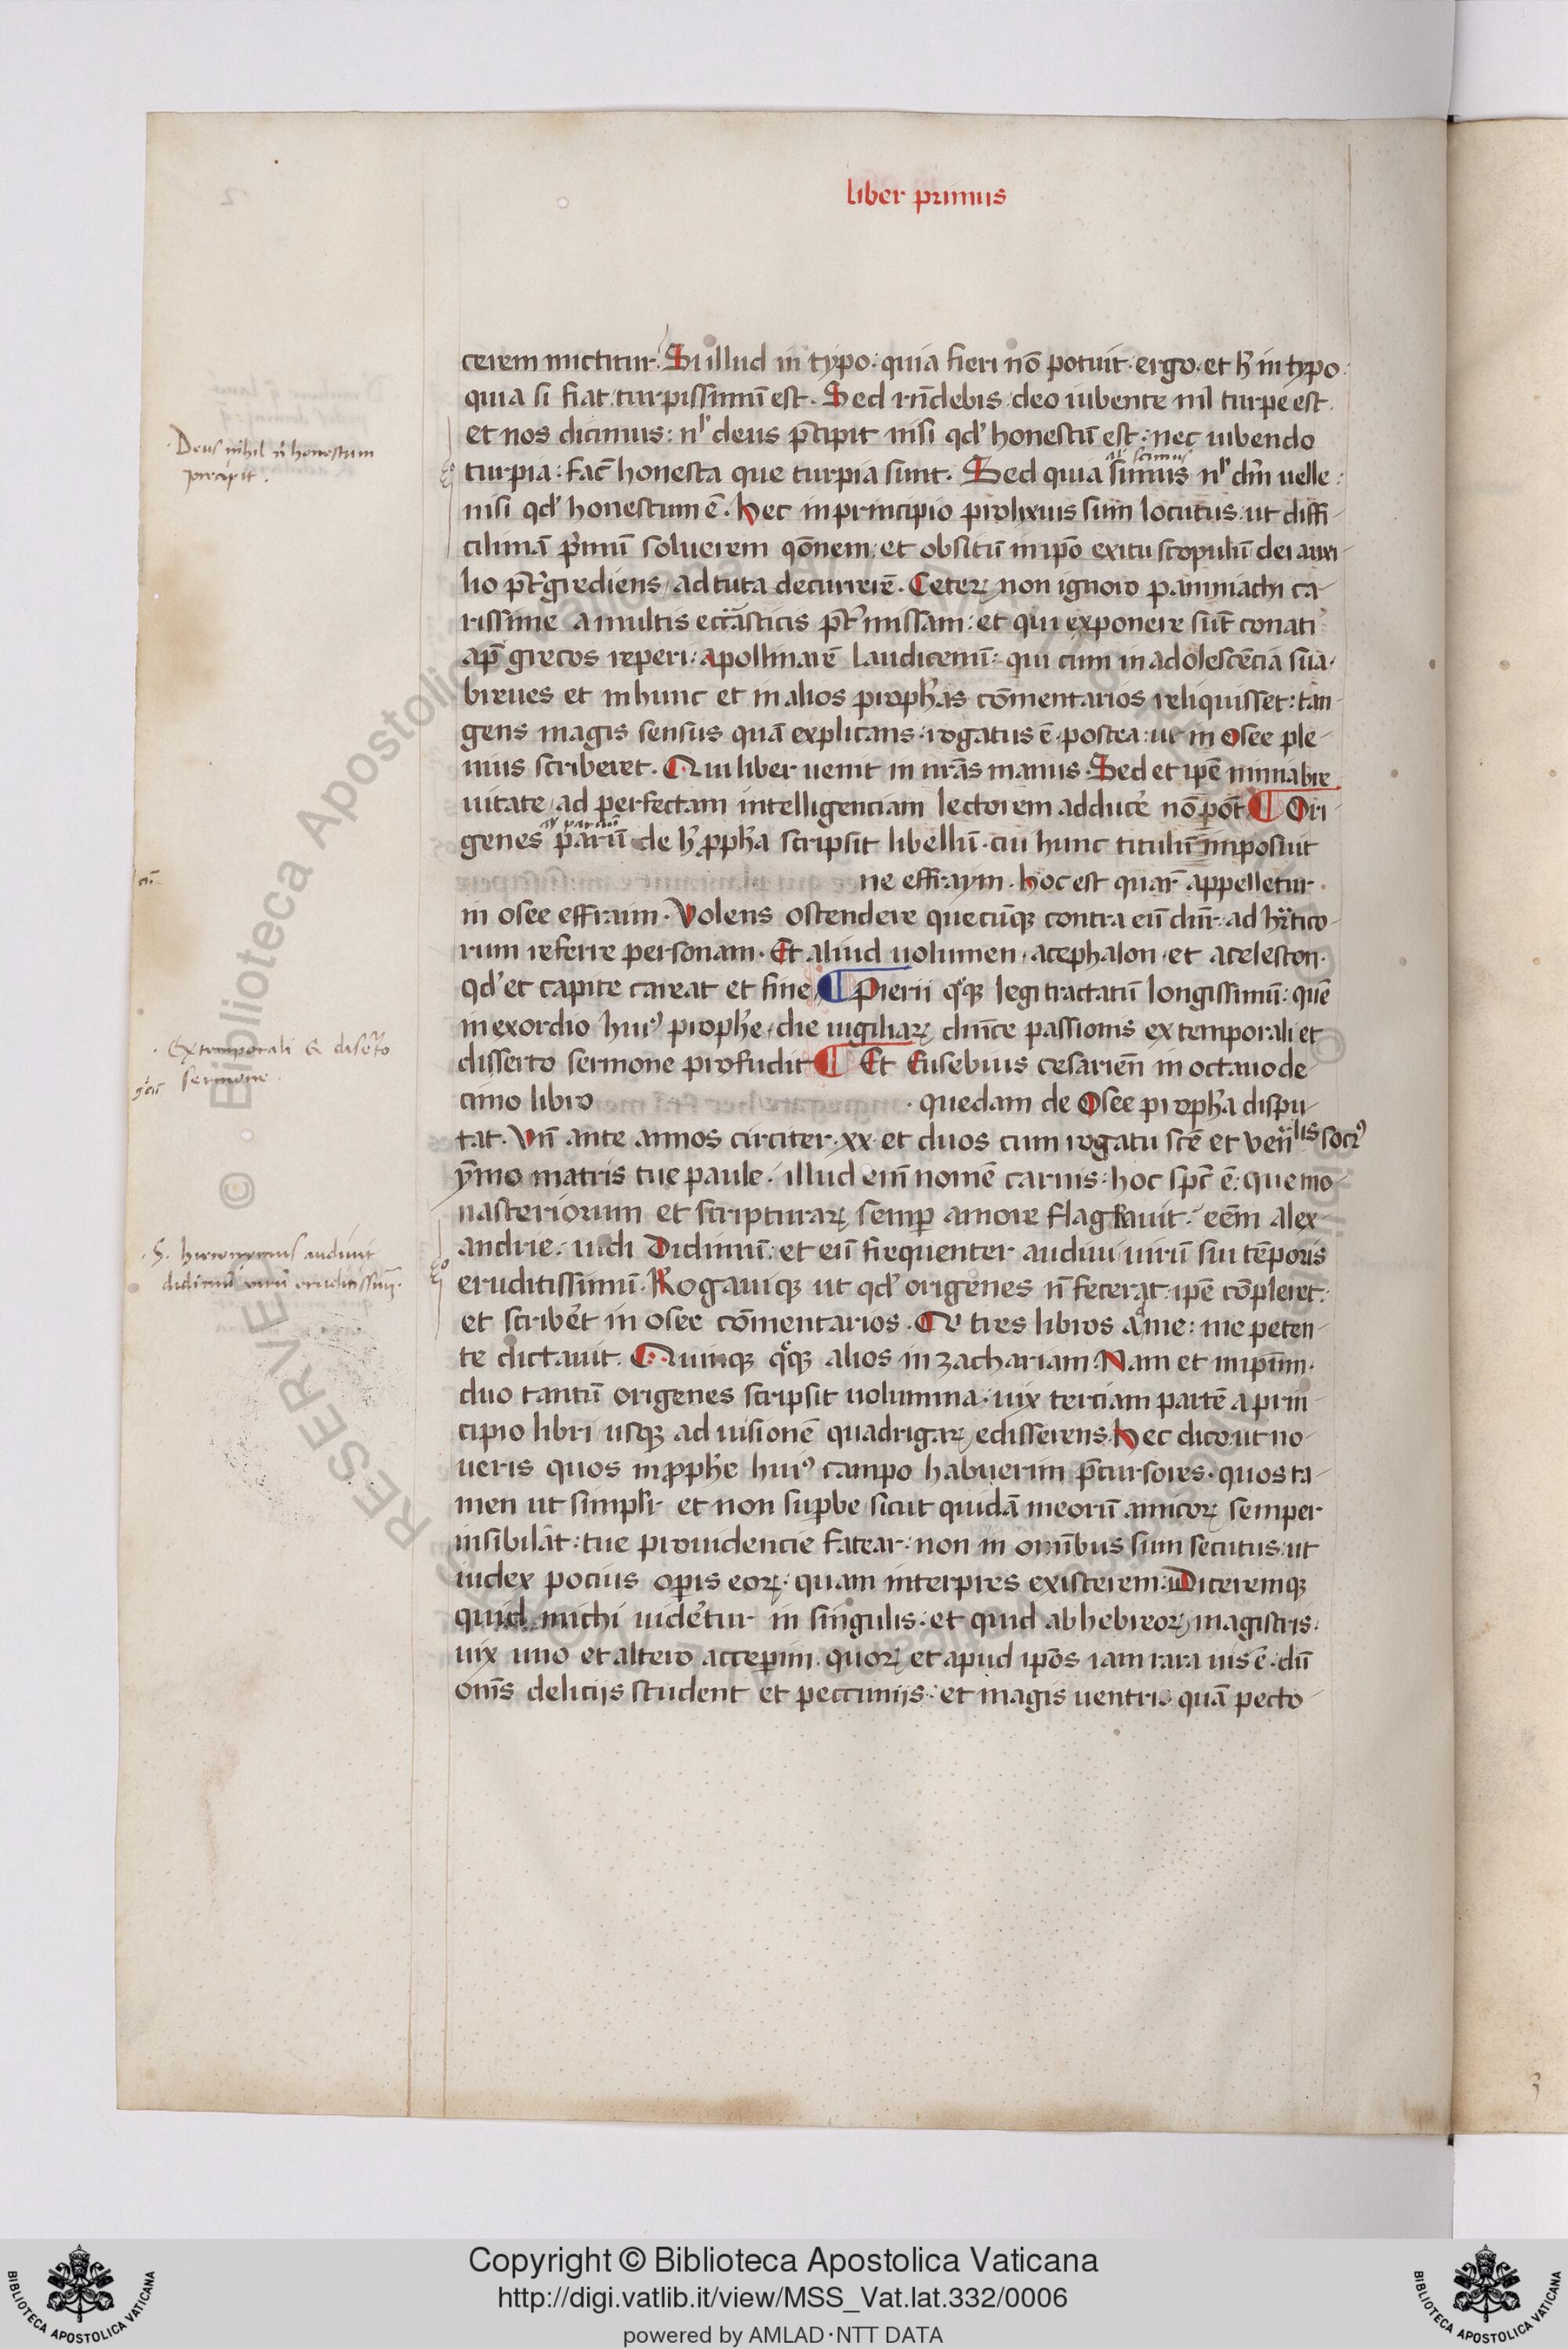 liber primus
cerem mictitur. Si illud in typo: quia fieri nō potuit. ergo. et h̄ in typo:
quia si fiat. turpissimū est. Sed rn̄debis deo iubente nil turpe est.
et nos dicimus: nl̓ deus p̄cipit nisi qd̓ honestū est: nec iubendo
Deus nihil n̄ honestum
precipit.
turpia: fac̄ honesta que turpia sunt. Sed quia simus nl̓ dn̄m uelle:
al̓ scimus
nisi qd̓ honestum ē. Hec in principio prolixius sum locutus. ut diffi-
cilimā p̓mū soluerem qōnem: et obsitū in ip̄o exitu scopulū dei auxi-
lio p̄t̓grediens / ad tuta decurrerē. Ceteꝝ non ignoro pammachi ca-
rissime a multis eccl̄asticis p̄t̓missam: et qui exponere sūt conati
ap̄ grecos reperi: apollinarē laudicenū: qui cum in adolescēcia sua.
breues et in hunc et in alios proph̄as cōmentarios reliquisset: tan-
gens magis sensus quā explicans. rogatus ē postea: ut in osee ple-
nius scriberet. Qui liber uenit in nr̄as manus. Sed et ip̄e nimia bre
uitate / ad perfectam intelligenciam lectorem adduce̓ nō pōt ¶ Ori-
genes parū de h̄ ꝓph̄a scripsit libellū. cui hunc titulū imposuit
ne effraym. hoc est quar̄ appelletur.
in osee effraim. Volens ostendere quecūqꝫ contra eū dn̄r: ad hr̄tico-
rum referre personam. Et aliud uolumen. acephalon. et aceleston.
qd̓ et capite careat et fine ¶ Pierii qͦqꝫ legi tractatū longissimū: quē
in exordio huiꝰ prophe̓ / die uigiliaꝝ dn̄ice passionis ex temporali et
Extemporali & diserto
sermone.
disserto sermone profudit ¶ Et Eusebius cesarien̄ in octauo de-
cimo libro . quedam de Osee proph̄a dispu-
tat. Vn̄ ante annos circiter. xx. et duos cum rogatu sc̄e et ven̄lis socrꝰ
ȳmo matris tue paule. illud eni̅ nomē carnis: hoc sp̄c ē: que mo-
nasteriorum et scripturaꝝ semp̱ amore flagrauit. eēm alex-
S. hieronymus audiuit
didimū uirū eruditissimū.
andrie. uidi Didimū: et eū frequenter audiui uirū sui tēporis
eruditissimū. Rogauiqꝫ ut qd̓ origenes n̄ fecerat: ip̄e cōpleret:
et scribe̓t in osee cōmentarios. Qͥ tres libros a me: me peten-
te dictauit. Quinqꝫ qͦqꝫ alios in zachariam. Nam et in ip̄m.
duo tantū origenes scripsit uolumina. uix terciam partē a prin-
cipio libri / usqꝫ ad uisionē quadrigaꝝ edisserens. Hec dico. ut no-
ueris quos in ꝓphe̓ huiꝰ campo habuerim p̄cursores. quos ta-
men ut simplr̄ et non sup̱be / sicut quidā meorū amicoꝝ semper
insibilāt: tue prouidencie fatear. non in omībus sum secutus. ut
iudex pocius op̱is eoꝝ. quam interpres existerem: Diceremqꝫ
quid michi uide̓tur in singulis. et quid ab hebreoꝝ magistris.
uix uno et altero accep̱im. quoꝝ et apud ip̄os iam rara uis ē. dū
om̄s deliciis student et peccuniis: et magis uentris quā pecto-
Copyright © Biblioteca Apostolica Vaticana
http://digi.vatlib.it/view/MSS_Vat.lat.332/0006
powered by AMLAD·NTT DATA